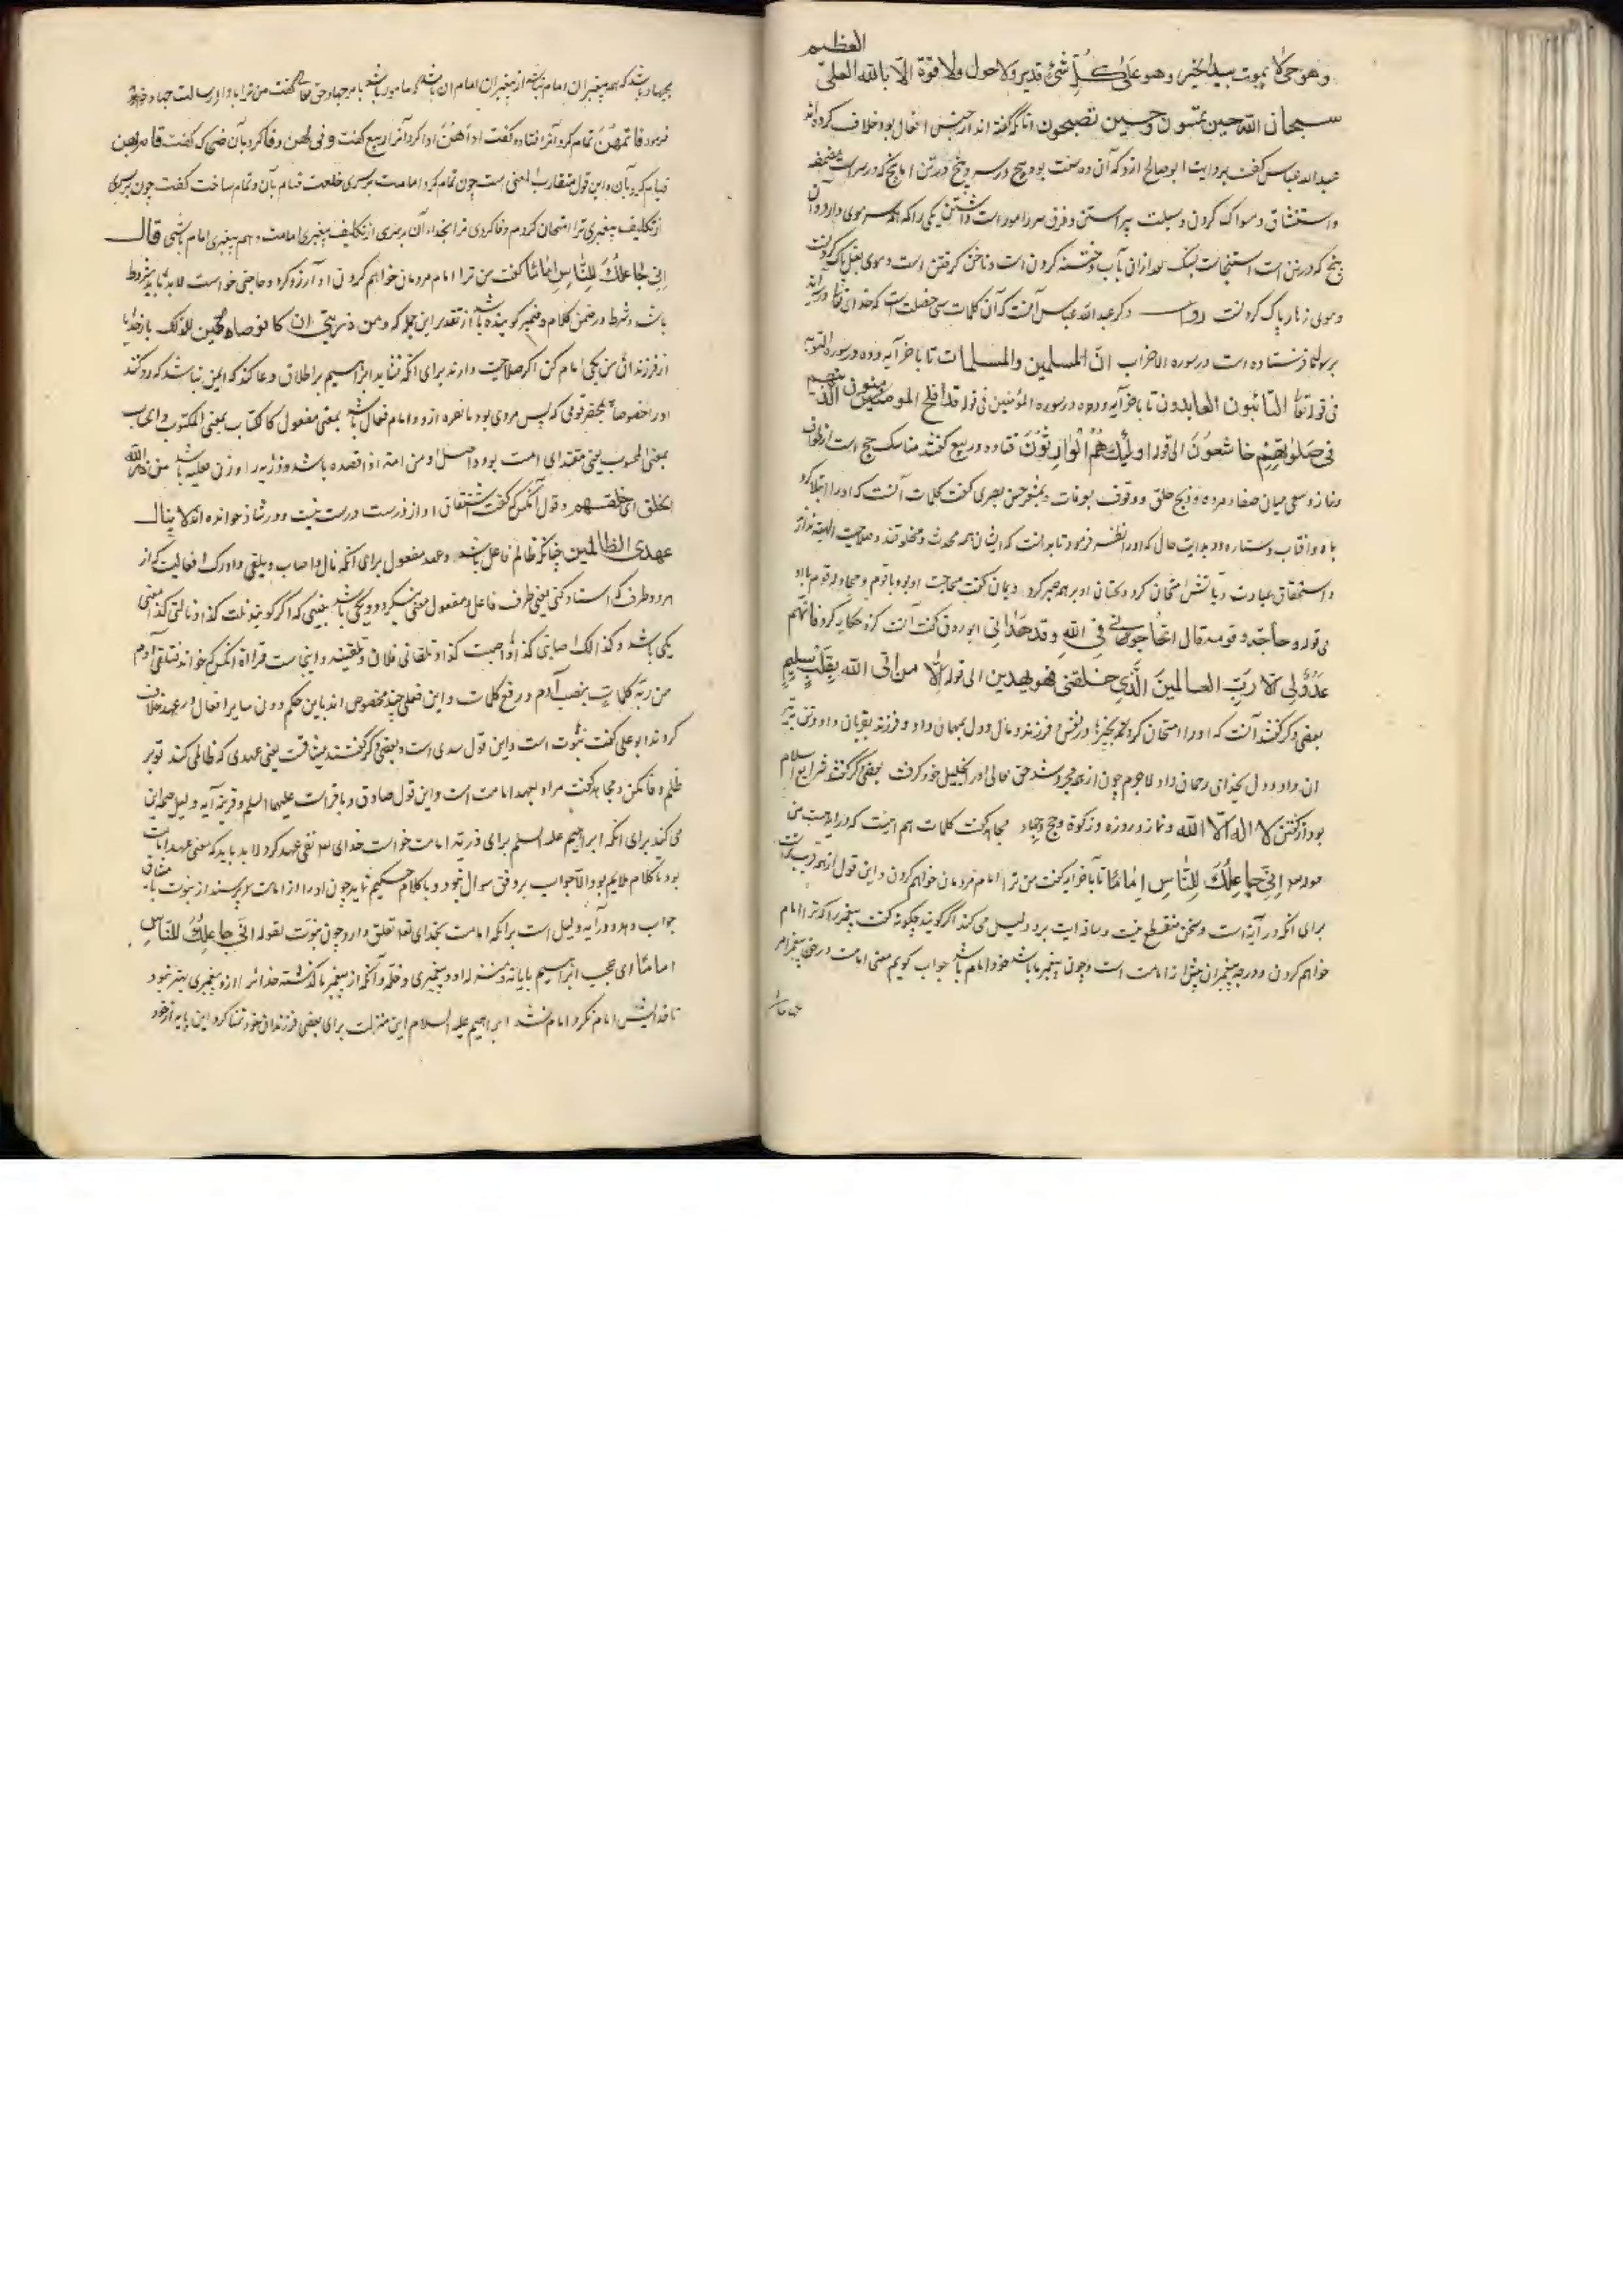 العظیم
وهو حی لا یموت بیده الخیر وهو علی کل شیء قدیر ولا حول ولا قوة الا بالله العلی
سبحان الله حین تمسون وحین تصبحون اما آنکه گفته اند از جنس افعال بود خلاف کرده اند
عبدالله عباس گفت بروایت ابو صالح ازو که آن ده سنت بود پنج در سر و پنج در تن اما پنج که در سر است مضمضه
واستنشاق و مسواک کردن و سبلت پیراستن و فرق سر
پنج که در تن است استنجاست بسنگ بعد ازان بآب و ختنه کردن است و ناخن گرفتن است و موی بغل پاک کردنست
وموی زهار پاک کردنست روایت دگر عبدالله عباس آنست که آن کلمات سی خصلت است که خدای تعالی
فرستاده است در سوره الاحزاب انّ المسلمین والمسلمات تا باخر آیه وده در سورة التوبه
فی قوله تعالی التائبون العابدون تا باخر آیه وده در سوره المؤمنین فی قوله قد افلح المومنون الذین هم
فی صلوتهم خاشعون الی قوله اولئک هم الوارثون قتاده وربیع گفتند مناسک حج است از طواف
ونماز وسعی میان صفا ومروه وذبح وحلق ووقوف بعرفات وبعضی حسن بصری گفت کلمات آنست که او را ابتلا کرد
بماه وافتاب وستاره ودر بدایت حال که او را نظر فرمود تا بدانست که ایشان همه محدث ومخلوقند وصلاحیت الهیة ندارند
واستحقاق عبادت وبآتش امتحان کرد وبختان او بر همه صبر کرد ویمان گفت محاجت او بود با قوم
فی قوله وحاجه قومه قال اتحاجونی فی الله وقد هدانی ابو روق گفت آنست کزو حکایه کرد فانهم
عدو لی الا رب العالمین الذی خلقنی فهو یهدین الی قوله الا من اتی الله بقلب سلیم
بعضی دگر گفتند آنست که او را امتحان کرد در نفس وفرزند ومال ودل بمهمان داد وفرزند بقربان داد وتن
ان داد ودل بخدای رحمان داد لا جرم چون از همه مجرد شد حق تعالی او را بخلیل خود گرفت بعضی دگر گفتند شرایع اسلام
بود از گفتن لا اله الا الله ونماز وروزه وزکوة وحج وجهاد مجاهد گفت کلمات هم اینست که در این آیتست من
قوله انی جاعلک للناس اماما تا بآخر آیه گفت من ترا امام مردمان خواهم کردن واین قول از همه قریب تر است
برای آنکه در آیة است وسخن منقطع نیست وساقه ایت برو دلیل می کند اگر گویند چگونه گفت پیغمبر را که ترا امام
خواهم کردن ودرجه پیغمبران بیش از امامت است وچون پیغمبر ما باشد خود امام باشد جواب گوییم معنی امامت در حق پیغمبر
بجهاد باشد که همه پیغمبران امام نباشند از پیغمبران امام آن باشد که مامور باشد بامر جهاد وحق تعالی گفت من ترا
فرمود فاتمهن تمام کرد آنرا قتاده گفت اداهن ادا کرد آنرا ربیع گفت وفی لهن وفا کرد بآن ضحاک گفت قام بهن
قیام کرد بآن واین قول متقارب المعنی است چون تمام کرد امامت
از تکالیف پیغمبری ترا امتحان کردم وفا کردی هم پیغمبری امام باشی قال
انی جاعلک للناس اماما گفت من ترا امام مردمان خواهم کردن او آرزو کرد وحاجتی خواست لابد
باشد وشرط در ضمن کلام ومضمر گوینده باشد از تقدیر این جمله که ومن ذریتی ان کانوا صالحین لذلک بار خدایا
از فرزندان من یکی امام کن اگر صلاحیت دارند برای آنکه نشاید ابراهیم بر اطلاق دعا کند که ایمن نباشد که رد کنند
او را خصوصاً بحضر قومی که پس مردی بود وامام فعال باشد بمعنی مفعول کالکتاب بمعنی المکتوب
بمعنی المحسوب یعنی مقتدای امت بود واصل او من امه اذا قصده باشد وذریه را وزن فعلیه باشد من ذرء الله
الخلق ای خلقهم وقول آنکس که گفت اشتقاق او از ذرست درست نیست ودر شاذ خوانده اند لا ینال
عهدی الظالمین چنانکه ظالم فاعل باشد وعهد مفعول برای آنکه نال واصاب وتلقی وادرک افعالیست که از
هر دو طرف که اسناد کنی یعنی طرف فاعل ومفعول معنی بنگردد ویکی باشد یعنی که اگر گویند نلت کذا ونالنی کذا معنی
یکی باشد وکذالک اصابنی کذا واصبت کذا وتلقانی فلان وتلقیته واینجاست قراءة آنکس که خواند فتلقی آدم
من ربه کلمات بنصب آدم ورفع کلمات واین فعلی چند مخصوص اند باین حکم دون سایر افعال ودر عهد خلاف
کردند ابو علی گفت نبوت است واین قول سدی است وبعضی دگر گفتند میثاقست یعنی عهدی که ظالمی کند تو بر
ظلم وفا مکن ومجاهد گفت مراد بعهد امامت است واین قول صادق وباقر است علیهما السلم وقرینه آیه دلیل صحه این
می کند برای آنکه ابراهیم علیه السلم برای ذریه امامت خواست خدای نفی عهد کرد لابد باید که معنی عهد امامت
بود تا کلام ملایم بود والا جواب بر وفق سوال نبود وبا کلام حکیم نماند چون او را از امامت پرسند از نبوت
جواب دهد ودر آیه دلیل است بر آنکه امامت بخدای تعالی تعلق دارد چون نبوت لقوله انی جاعلک للناس
اماما ای عجب ابراهیم با پایه ومنزله او در پیغمبری وخلة وآنکه از پیغمبر ما گذشته خدای را ازو پیغمبری بهتر نبود
تا خدایش امام نکرد امام نشد ابراهیم علیه السلام این منزلت برای بعضی فرزندان خود تمنا کرد این پایه از خود